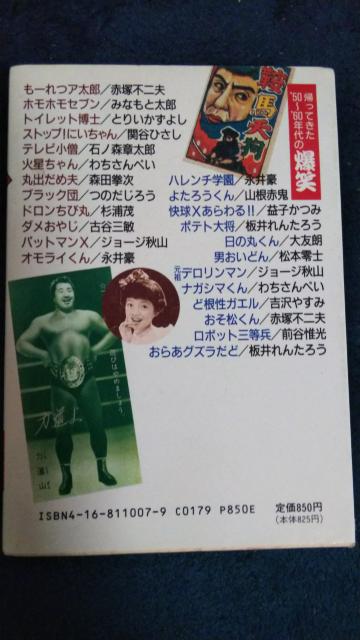 帰ってきた
'50〜'60年代の
爆笑
鞍馬天狗
もーれつア太郎／赤塚不二夫
ホモホモセブン／みなもと太郎
トイレット博士／とりいかずよし
ストップ!にいちゃん／関谷ひさし
テレビ小僧／石ノ森章太郎
火星ちゃん／わちさんぺい
丸出だめ夫／森田拳次
ブラック団／つのだじろう
ドロンちび丸／杉浦茂
ダメおやじ／古谷三敏
パットマンX／ジョージ秋山
オモライくん／永井豪
ハレンチ学園／永井豪
よたろうくん／山根赤鬼
快球Xあらわる!!／益子かつみ
ポテト大将／板井れんたろう
日の丸くん／大友朗
男おいどん／松本零士
元祖デロリンマン／ジョージ秋山
ナガシマくん／わちさんぺい
ど根性ガエル／吉沢やすみ
おそ松くん／赤塚不二夫
ロボット三等兵／前谷惟光
おらあグズラだど／板井れんたろう
力道山
ISBN4-16-811007-9 C0179 P850E
定価850円
（本体825円）